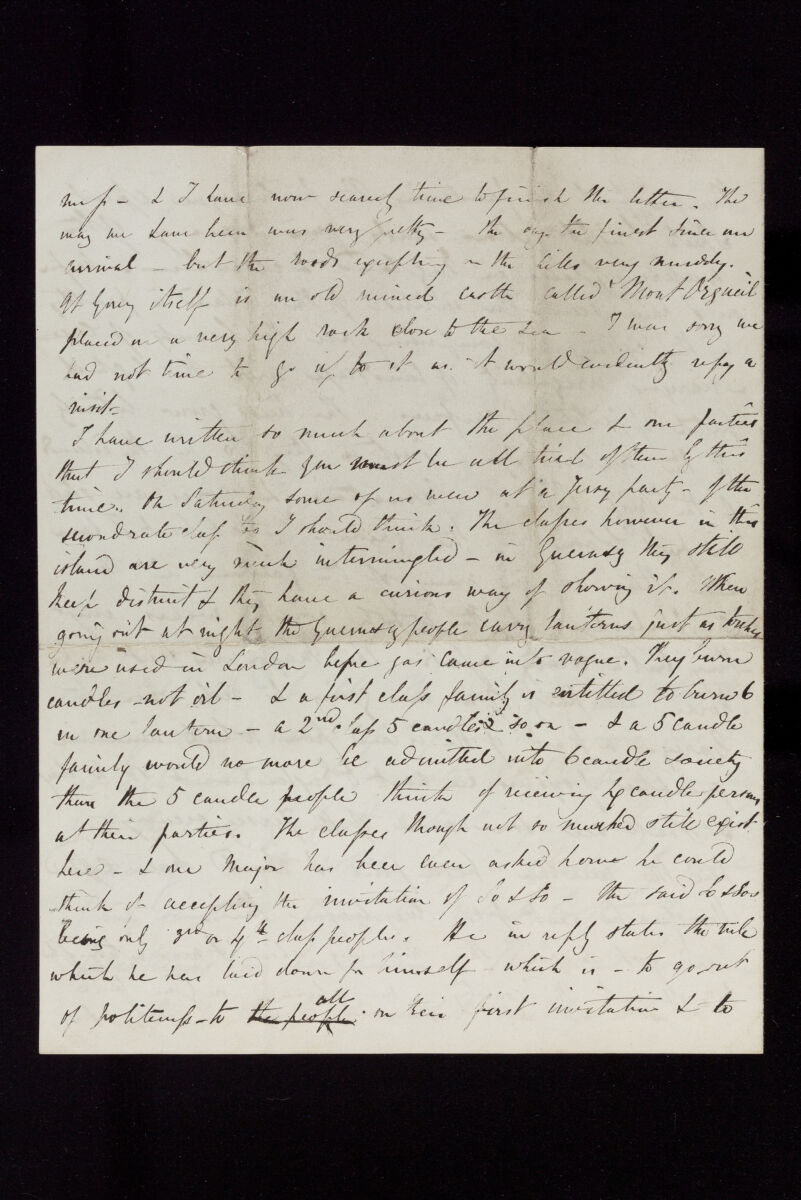 mess - & I have now scarcely time to finish the letter. The
way we have been was very pretty - the day the finest since our
arrival - but the roads excepting on the hills very muddy.
At Gorey itself is an old ruined castle called Mont Orgueil
placed on a very high rock close to the sea - I was sorry we
had not time to go up to it as it would evidently repay a
visit -
I have written so much about the place & our parties
that I should think you must be all tired of them by this
time. On Saturday some of us were at a Jersey party - of the
second rate class I should think. The classes however in this
island are very much intermingled - in Guernsey they still
keep distinct & they have a curious way of showing it. When
going out at night the Guernsey people carry lanterns just as torches
were used in London before gas came into vogue. They burn
candles - not oil - & a first class family is entitled to burn 6
in one lantern - a 2nd class 5 candles & so on - & a 5 candle
family would no more be admitted into 6 candle society
than the 5 candle people think of receiving 4 candle persons
at their parties. The classes though not so marked still exist
here - & our Major has been even asked how he could
think of accepting the invitation of So & So - the said So & So
being only 3rd or 4th class people. He in reply states the rule
which he has laid down for himself - which is - to go out
of politeness - to the people all on their first invitation & to